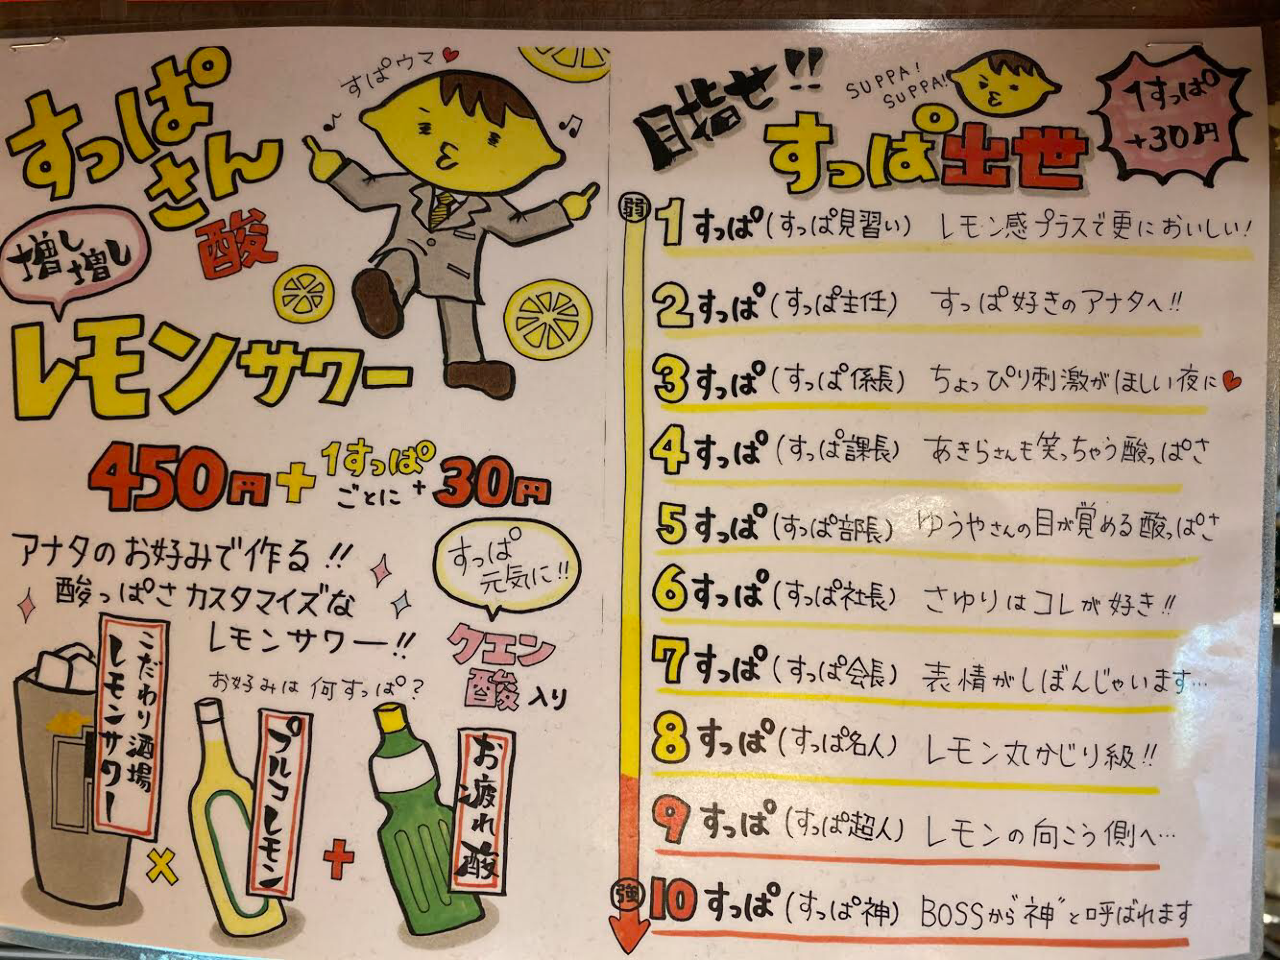 すっぱ
さん
酸
増し
増し
レモンサワー
すぱウマ
450円+1すっぱごとに+30円
アナタのお好みで作る!!
酸っぱさカスタマイズな
レモンサワー!!
お好みは何すっぱ?
すっぱ
元気に!!
クエン
酸入り
こだわり酒場
レモンサワー
×
プルコレモン
+
お疲れ酸
目指せ!!
すっぱ出世
SUPPA!
SUPPA!
1すっぱ
+30円
弱
1すっぱ(すっぱ見習い) レモン感プラスで更においしい!
2すっぱ(すっぱ主任) すっぱ好きのアナタへ!!
3すっぱ(すっぱ係長) ちょっぴり刺激がほしい夜に
4すっぱ(すっぱ課長) あきらさんも笑っちゃう酸っぱさ
5すっぱ(すっぱ部長) ゆうやさんの目が覚める酸っぱさ
6すっぱ(すっぱ社長) さゆりはコレが好き!!
7すっぱ(すっぱ会長) 表情がしぼんじゃいます…
8すっぱ(すっぱ名人) レモン丸かじり級!!
9すっぱ(すっぱ超人) レモンの向こう側へ…
強
10すっぱ(すっぱ神) BOSSから“神”と呼ばれます